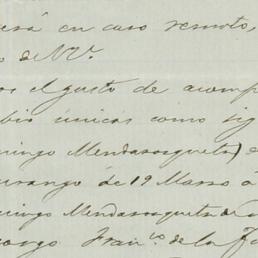 será en caso remoto,
de VV.
el gusto de acomp
bio únicas como sig
mingo Mendarozqueta) e
urango de 19 Marzo á
mingo Mendarozqueta de
rango Fran.co de la Fa